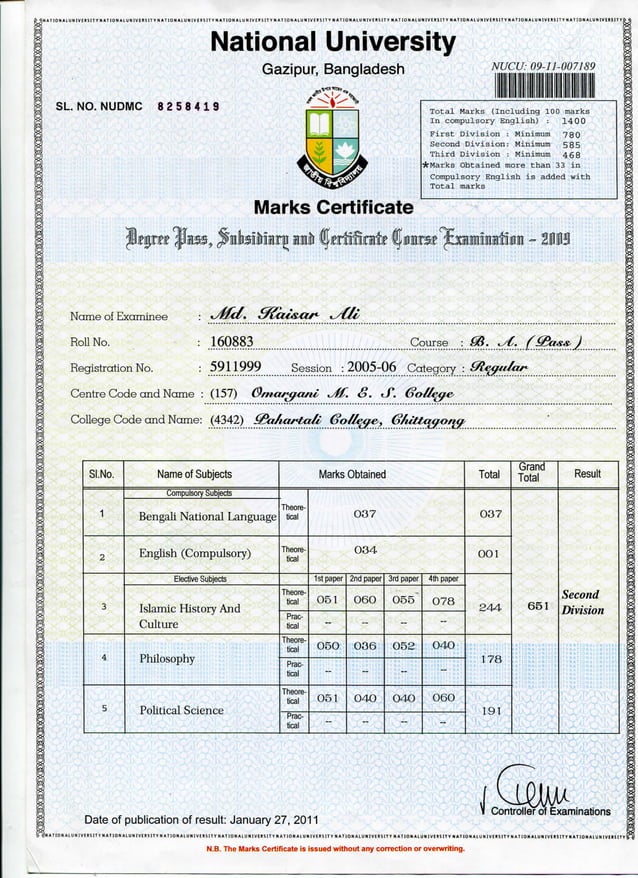 National University
Gazipur, Bangladesh
NUCU: 09-11-007189
SL. NO. NUDMC 8258419
Total Marks (Including 100 marks
In compulsory English) : 1400
First Division : Minimum 780
Second Division: Minimum 585
Third Division : Minimum 468
*Marks Obtained more than 33 in
Compulsory English is added with
Total marks
জাতীয় বিশ্ববিদ্যালয়
Marks Certificate
Degree Pass, Subsidiary and Certificate Course Examination - 2009
Name of Examinee : Md. Kaisar Ali
Roll No. : 160883 Course : B. A. (Pass)
Registration No. : 5911999 Session : 2005-06 Category : Regular
Centre Code and Name : (157) Omargani M. E. S. College
College Code and Name: (4342) Pahartali College, Chittagong
Sl.No. Name of Subjects Marks Obtained Total Grand Total Result
Compulsory Subjects
1 Bengali National Language Theore-tical 037 037
2 English (Compulsory) Theore-tical 034 001
Elective Subjects 1st paper 2nd paper 3rd paper 4th paper
3 Islamic History And Culture Theore-tical 051 060 055 078 244 651 Second Division
Prac-tical -- -- -- --
4 Philosophy Theore-tical 050 036 052 040 178
Prac-tical -- -- -- --
5 Political Science Theore-tical 051 040 040 060 191
Prac-tical -- -- -- --
Controller of Examinations
Date of publication of result: January 27, 2011
N.B. The Marks Certificate is issued without any correction or overwriting.